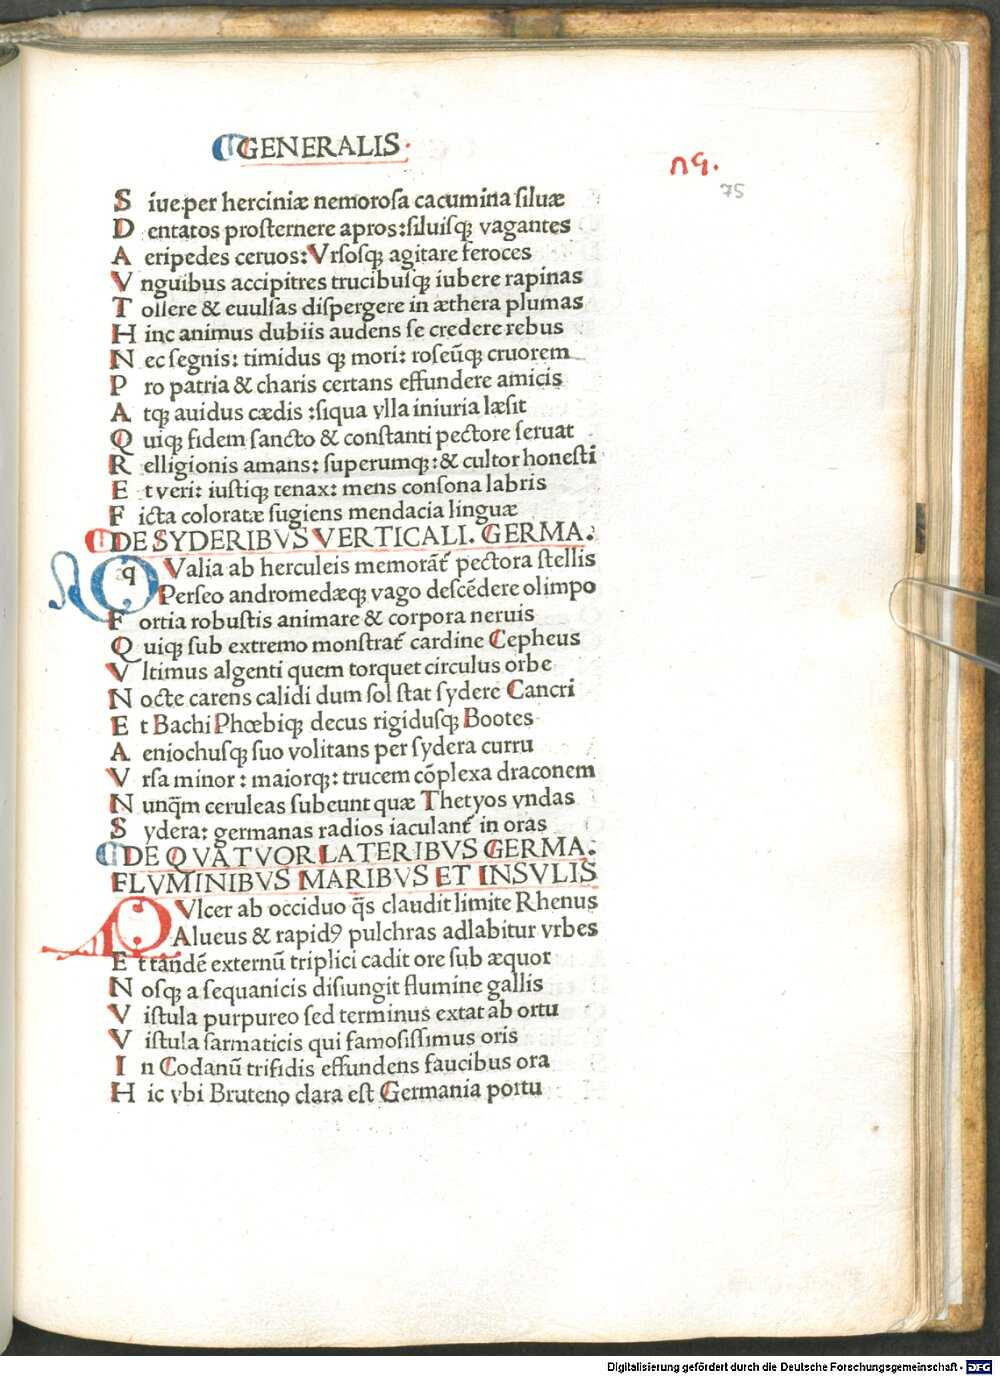 GENERALIS.
n9.
75
S iue per herciniæ nemorosa cacumina siluæ
D entatos prosternere apros: siluisq; vagantes
A eripedes ceruos: Vrsosq; agitare feroces
V nguibus accipitres trucibusq; iubere rapinas
T ollere & euulsas dispergere in æthera plumas
H inc animus dubiis audens se credere rebus
N ec segnis: timidus q; mori: roseūq; cruorem
P ro patria & charis certans effundere amicis
A tq; auidus cædis :siqua ylla iniuria læsit
Q uiq; fidem sancto & constanti pectore seruat
R elligionis amans: superumq;: & cultor honesti
E t veri: iustiq; tenax: mens consona labris
F icta coloratæ fugiens mendacia linguæ
DE SYDERIBVS VERTICALI. GERMA.
Q Valia ab herculeis memorāt᷑ pectora stellis
Perseo andromedæq; vago descēdere olimpo
F ortia robustis animare & corpora neruis
Q uiq; sub extremo monstrat᷑ cardine Cepheus
V ltimus algenti quem torquet circulus orbe
N octe carens calidi dum sol stat sydere Cancri
E t Bachi Phœbiq; decus rigidusq; Bootes
A eniochusq; suo volitans per sydera curru
V rsa minor : maiorq;: trucem cōplexa draconem
N unq̄m ceruleas subeunt quæ Thetyos vndas
S ydera: germanas radios iaculant᷑ in oras
DE QVATVOR LATERIBVS GERMA.
FLVMINIBVS MARIBVS ET INSVLIS
Q Vlcer ab occiduo q̄s claudit limite Rhenus
Alueus & rapid9 pulchras adlabitur vrbes
E t tandē externū triplici cadit ore sub æquor
N osq; a sequanicis disiungit flumine gallis
V istula purpureo sed terminus extat ab ortu
V istula sarmaticis qui famosissimus oris
I n Codanū trifidis effundens faucibus ora
H ic vbi Bruteno clara est Germania portu
Digitalisierung gefördert durch die Deutsche Forschungsgemeinschaft - DFG